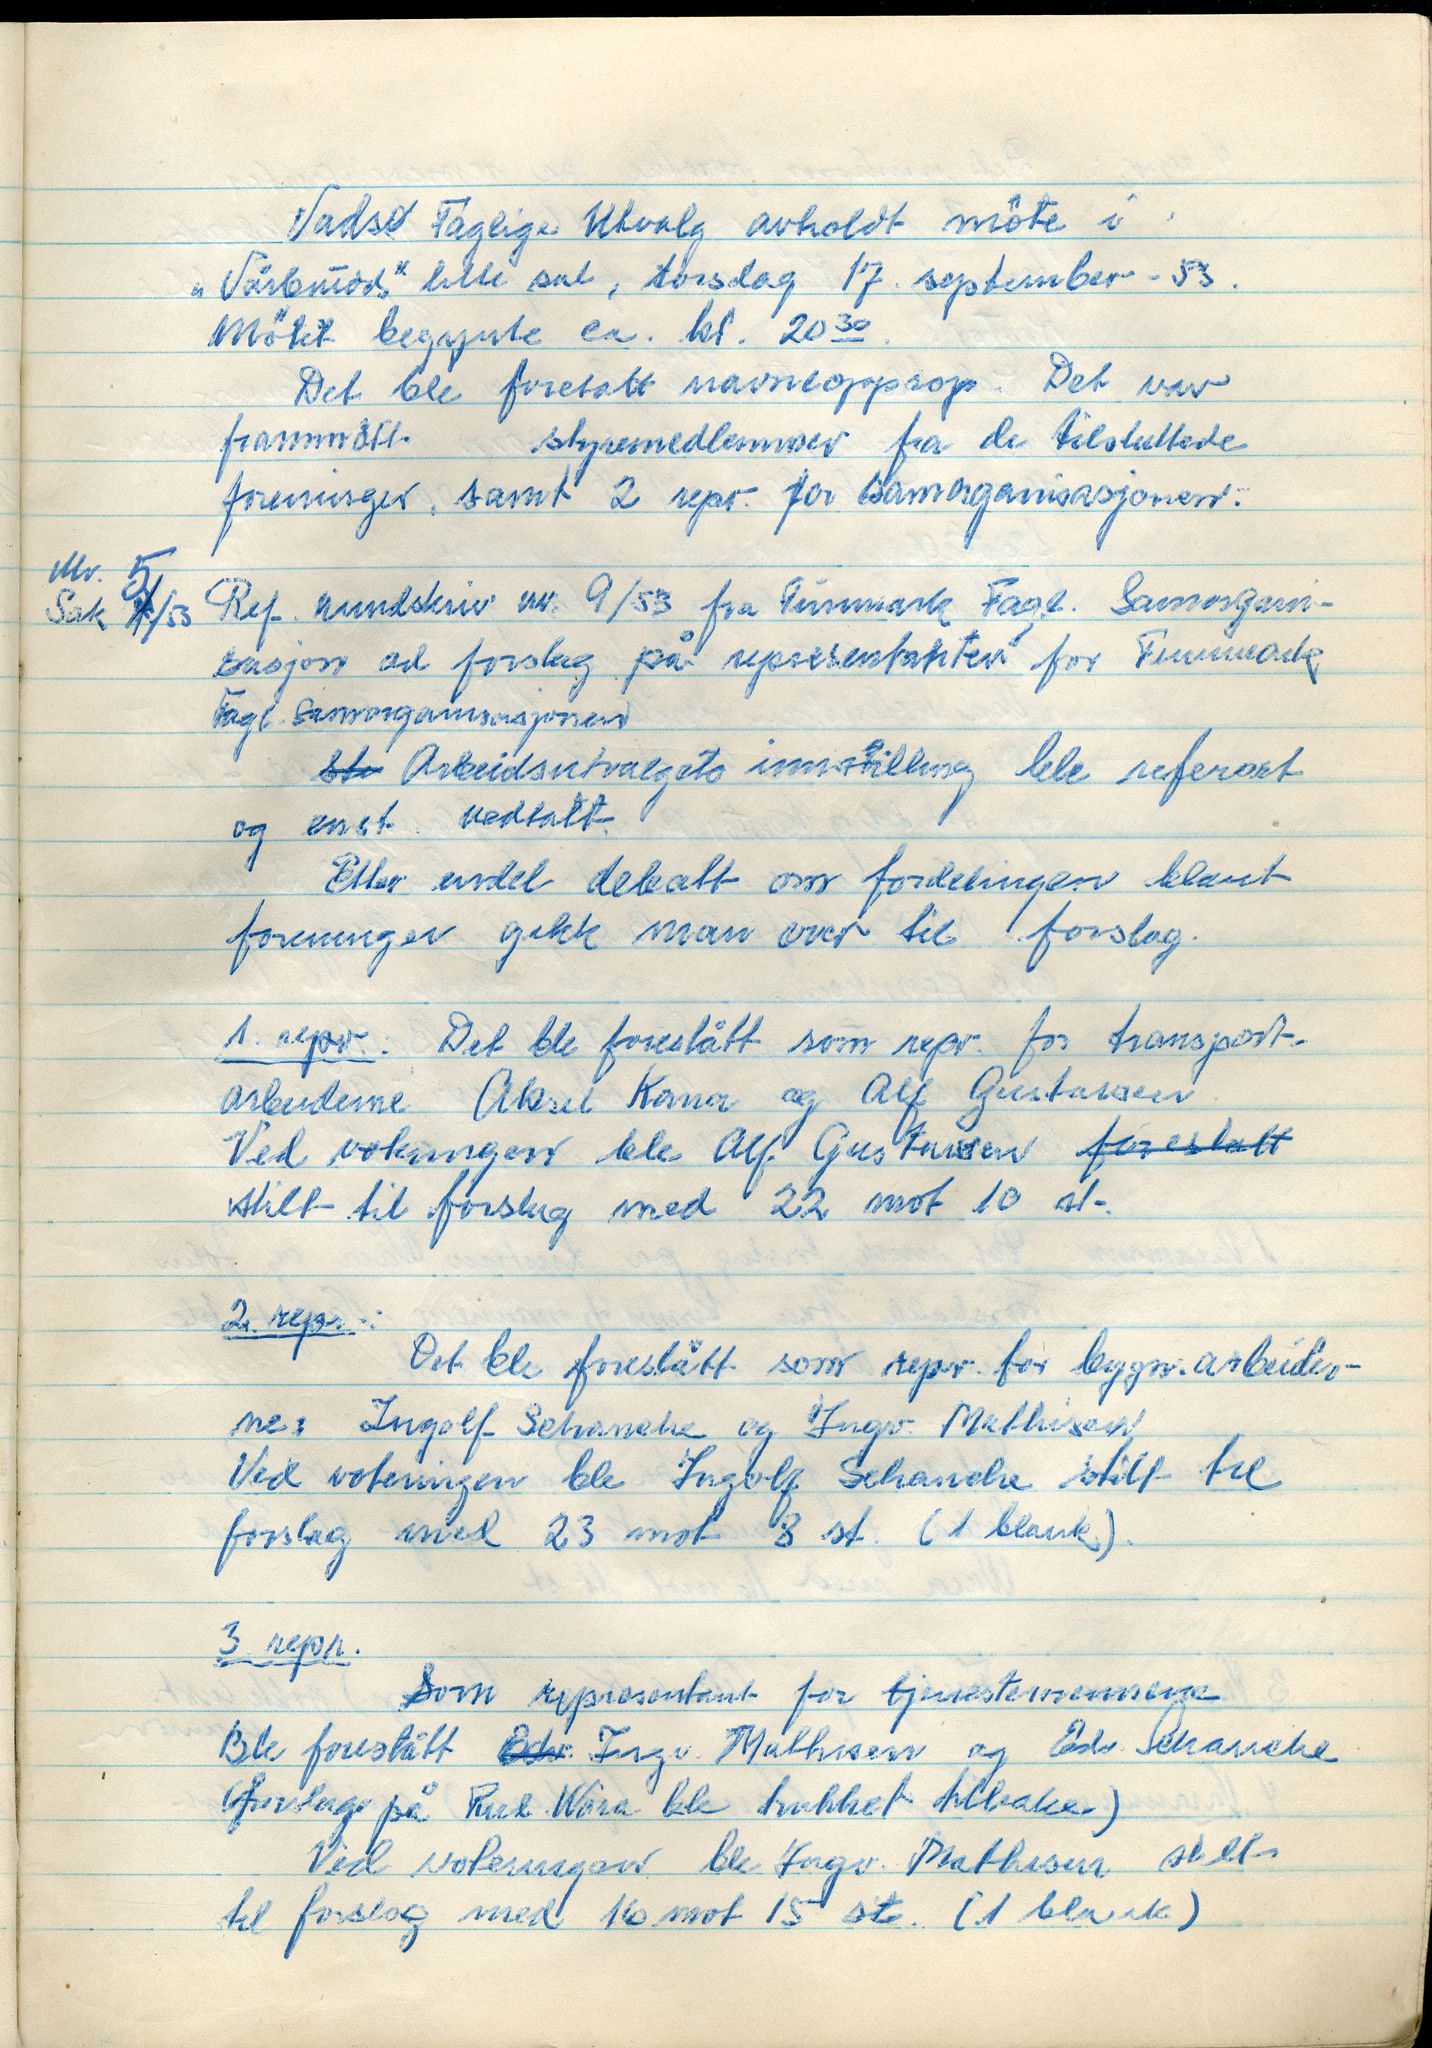 Vadsø Faglige Utvalg avholdt möte i
„Vårbrudds" lille sal, torsdag 17. september - 53.
Mötet begynte ca. kl. 20³⁰.
Det ble foretatt navneopprop. Det var
frammött styremedlemmer fra de tilsluttede
foreninger, samt 2 repr. for samorganisasjonen.
Nr. 5
Sak 4/53 Ref. rundskriv nr. 9/53 fra Finnmark Fagl. Samorgani-
sasjon ad forslag på representanter for Finnmark
Fagl. Samorganisasjonen
Arbeidsutvalgets innstilling ble referert
og enst. vedtatt.
Etter endel debatt om fordelingen blant
foreninger gikk man over til forslag.
1. repr.: Det ble foreslått som repr. for transport-
arbeiderne Aksel Kana og Alf Gustavsen.
Ved voteringen ble Alf Gustavsen foreslått
stilt til forslag med 22 mot 10 st.
2. repr.:
Det ble foreslått som repr. for bygn. arbeider-
ne: Ingolf Schanche og Ingv. Mathisen
Ved voteringen ble Ingolf Schanche stilt til
forslag med 23 mot 8 st. (1 blank).
3 repr.
Som representant for tjenestemennene
Ble foreslått Edv. Ingv. Mathisen og Edv. Schanche
(forslag på Wara ble trukket tilbake)
Ved voteringen ble Ingv. Mathisen stilt
til forslag med 16 mot 15 st. (1 blank)